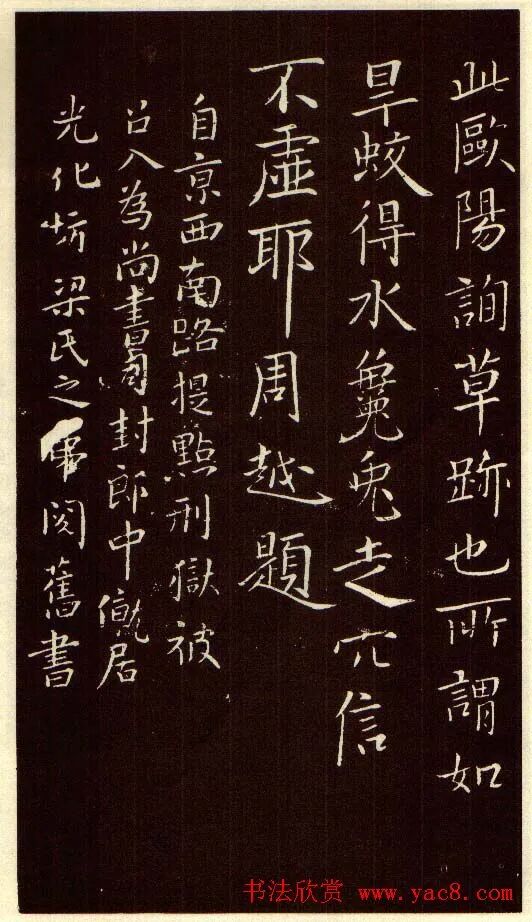 此歐陽詢草跡也所謂如
旱蛟得水毚兔走穴信
不虛耶周越題
自亰西南路提點刑獄被
召入為尚書司封郎中僦居
光化坊梁氏之第閱舊書
书法欣赏 www.yac8.com